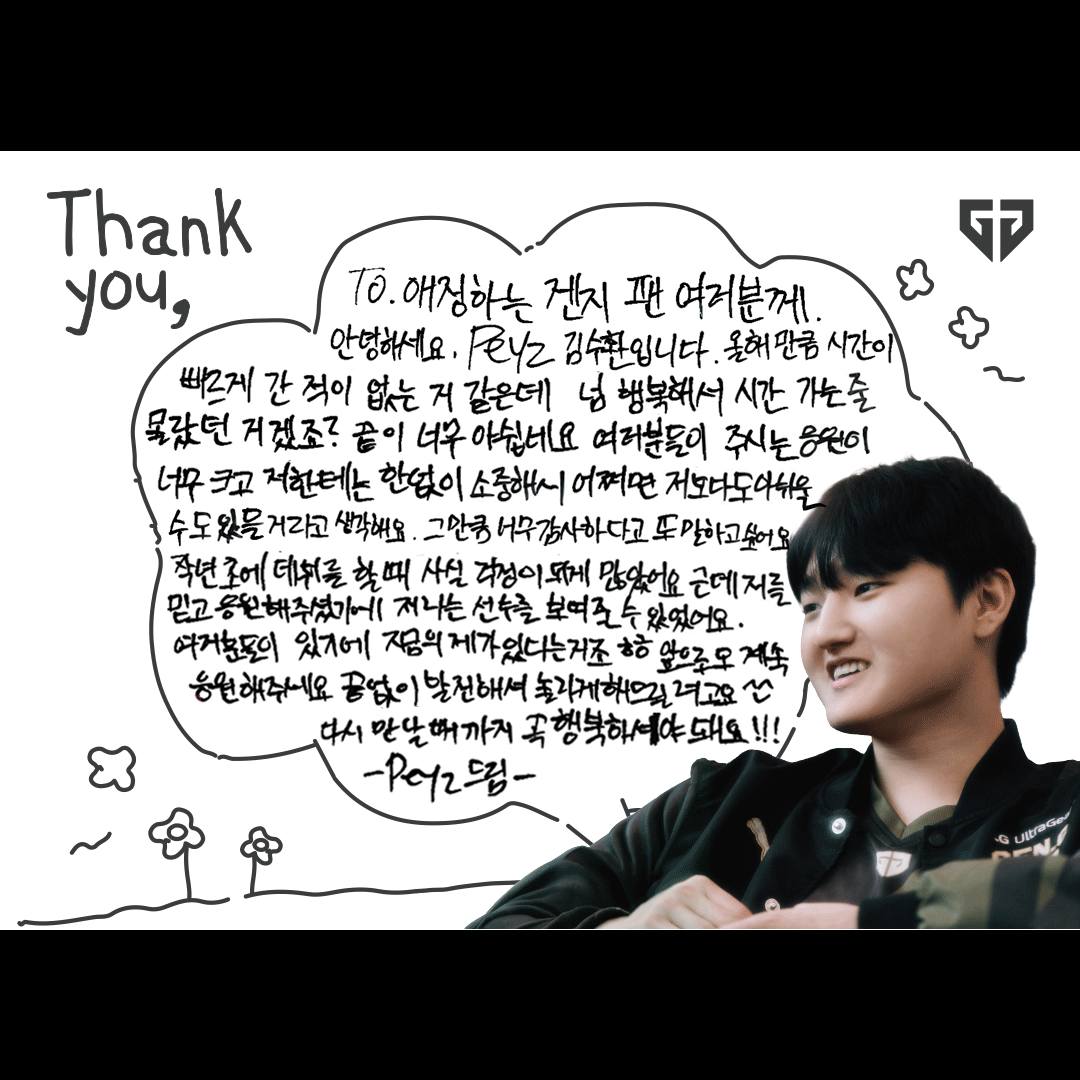 Thank
you,
To. 애정하는 젠지 팬 여러분께.
안녕하세요. Peyz 김수환입니다. 올해만큼 시간이
빠르게 간 적이 없는 거 같은데 넘 행복해서 시간 가는 줄
몰랐던 거겠죠? 끝이 너무 아쉽네요 여러분들이 주시는 응원이
너무 크고 저한테는 한없이 소중해서 어쩌면 저보다도 아쉬울
수도 있을거라고 생각해요. 그만큼 너무 감사하다고 또 말하고싶어요
작년 초에 데뷔를 할때 사실 걱정이 되게 많았어요 근데 저를
믿고 응원해주셨기에 저라는 선수를 보여줄 수 있었어요.
여러분들이 있기에 지금의 제가있다는거죠 ㅎㅎ 앞으로도 계속
응원해주세요 끝없이 발전해서 놀라게해드릴려고요 ^^
다시 만날 때까지 꼭 행복하셔야 돼요!!!
-Peyz 드림-
G UltraGea
GEN.G